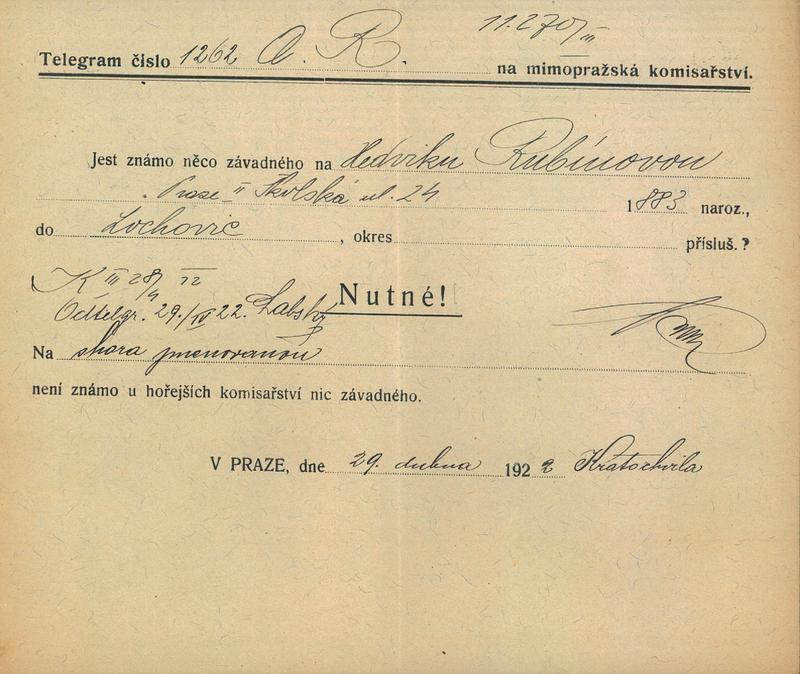 11.270/III
Telegram číslo 1262 A. R. na mimopražská komisařství.
Jest známo něco závadného na Hedviku Rubínovou
Praze II Školská ul. 24 1883 naroz.,
do Lochovic, okres přísluš.?
K III 28/4 22
Odtelgr. 29./IV 22. Labský
Nutné!
Na shora jmenovanou
není známo u hořejších komisařství nic závadného.
V PRAZE, dne 29. dubna 1922 Kratochvila